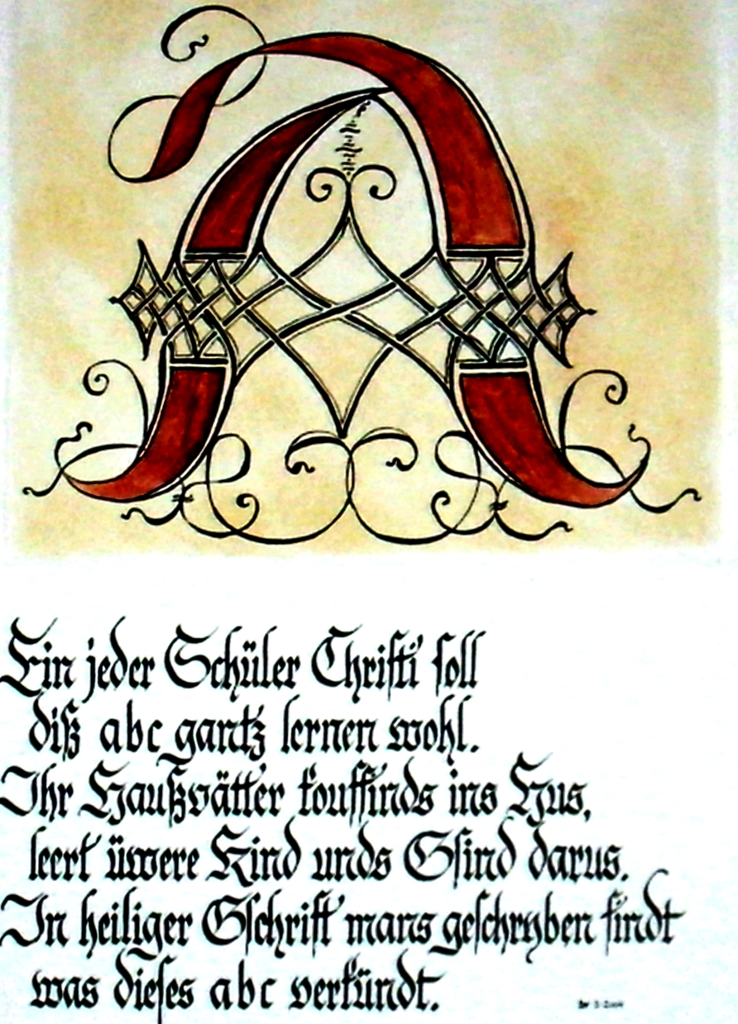 A
Ein jeder Schüler Christi soll
diß abc gantz lernen wohl.
Ihr Haußvätter kouffinds ins Hus,
leert üwere Kind unds Gsind darus.
In heiliger Gschrift mans geschryben findt
was dieses abc verkündt.